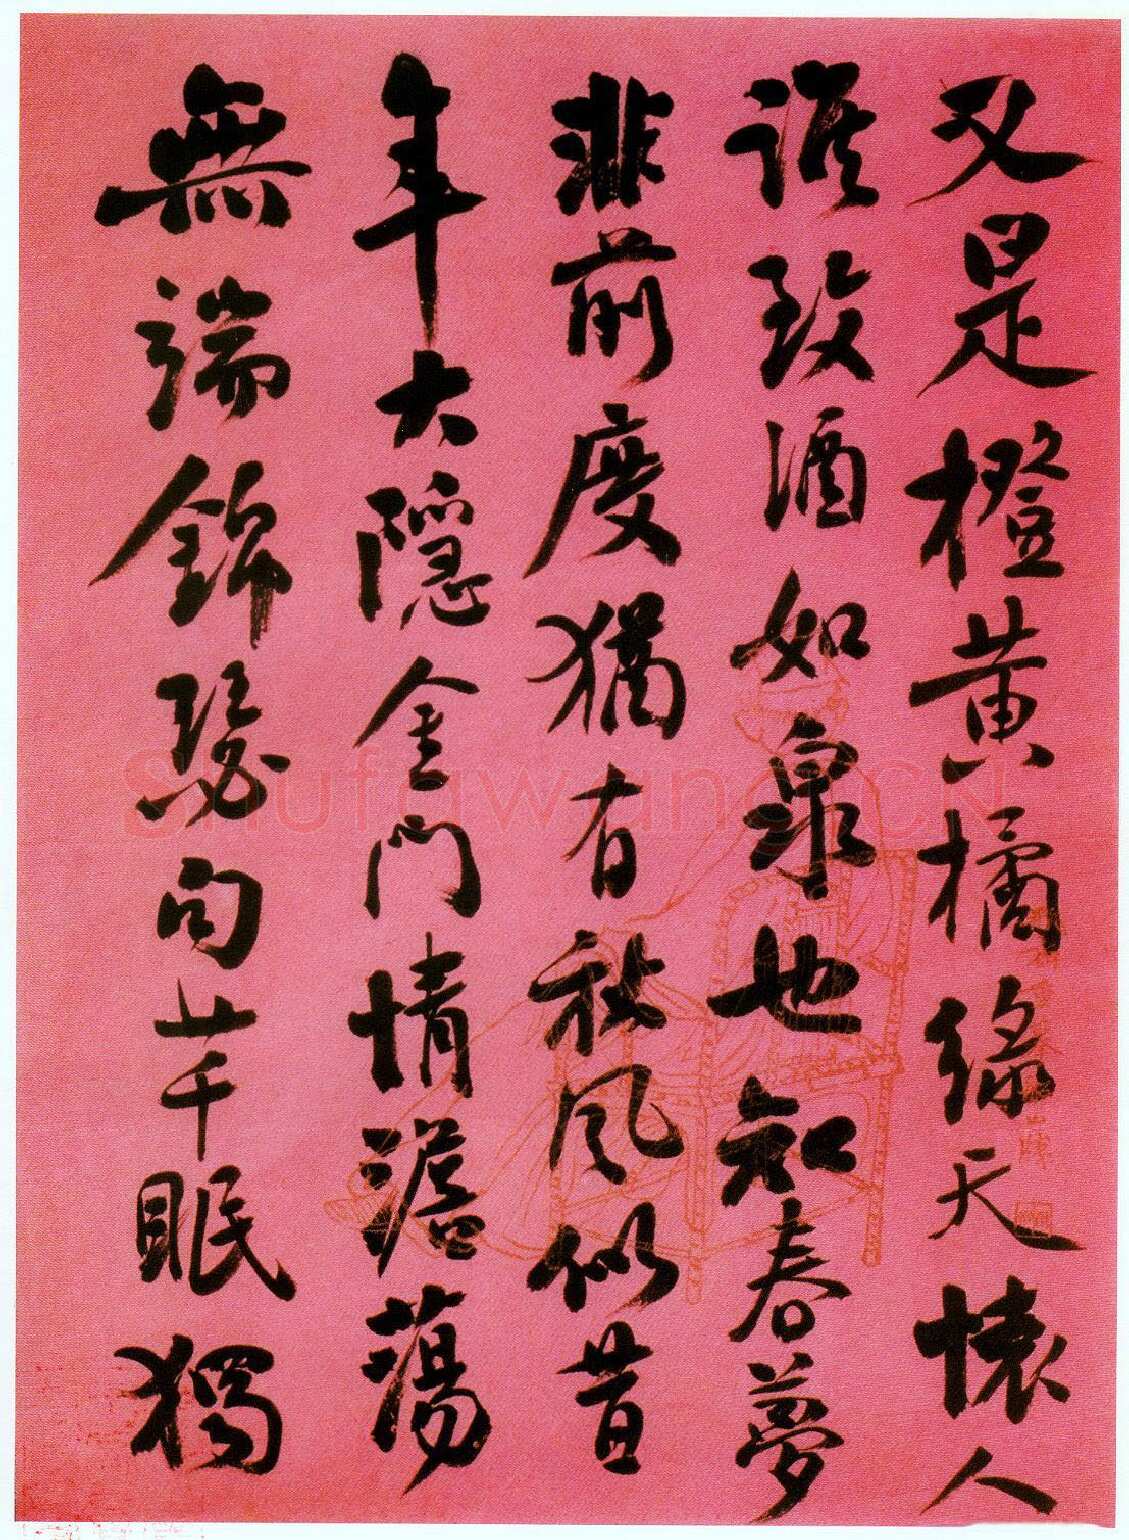 又是橙黄橘綠天懷人
誰致酒如泉也知春夢
非前度猶有秋風似昔
年大隱金門情澹蕩
無端錦瑟句芊眠獨
Shufawang.CN